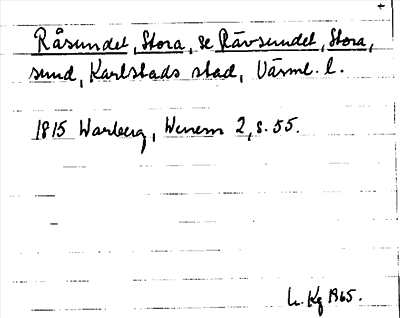 +
Råsundet, Stora, se Rävsundet, Stora,
sund, Karlstads stad, Värml. l.
1815 Warberg, Wenern 2, s. 55.
L. Kg 1965.